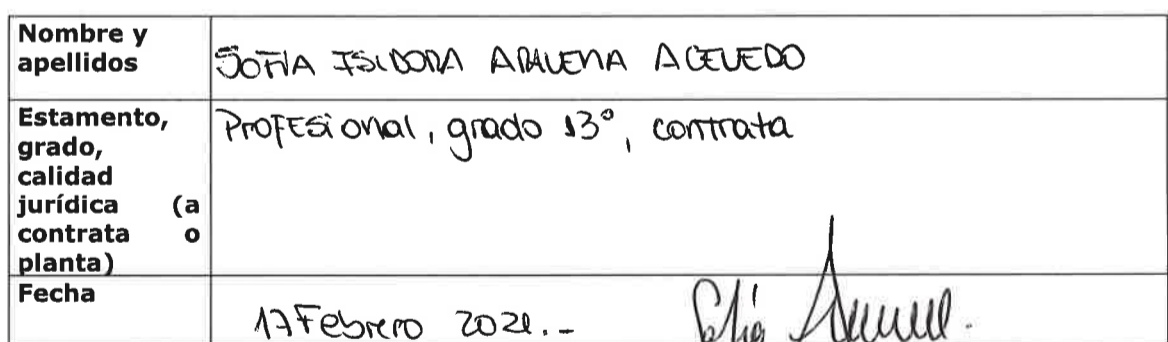 Nombre y
apellidos
SOFÍA ISIDORA ARAVENA ACEVEDO
Estamento,
grado,
calidad
jurídica (a
contrata o
planta)
Profesional, grado 13°, contrata
Fecha
17 Febrero 2021.-